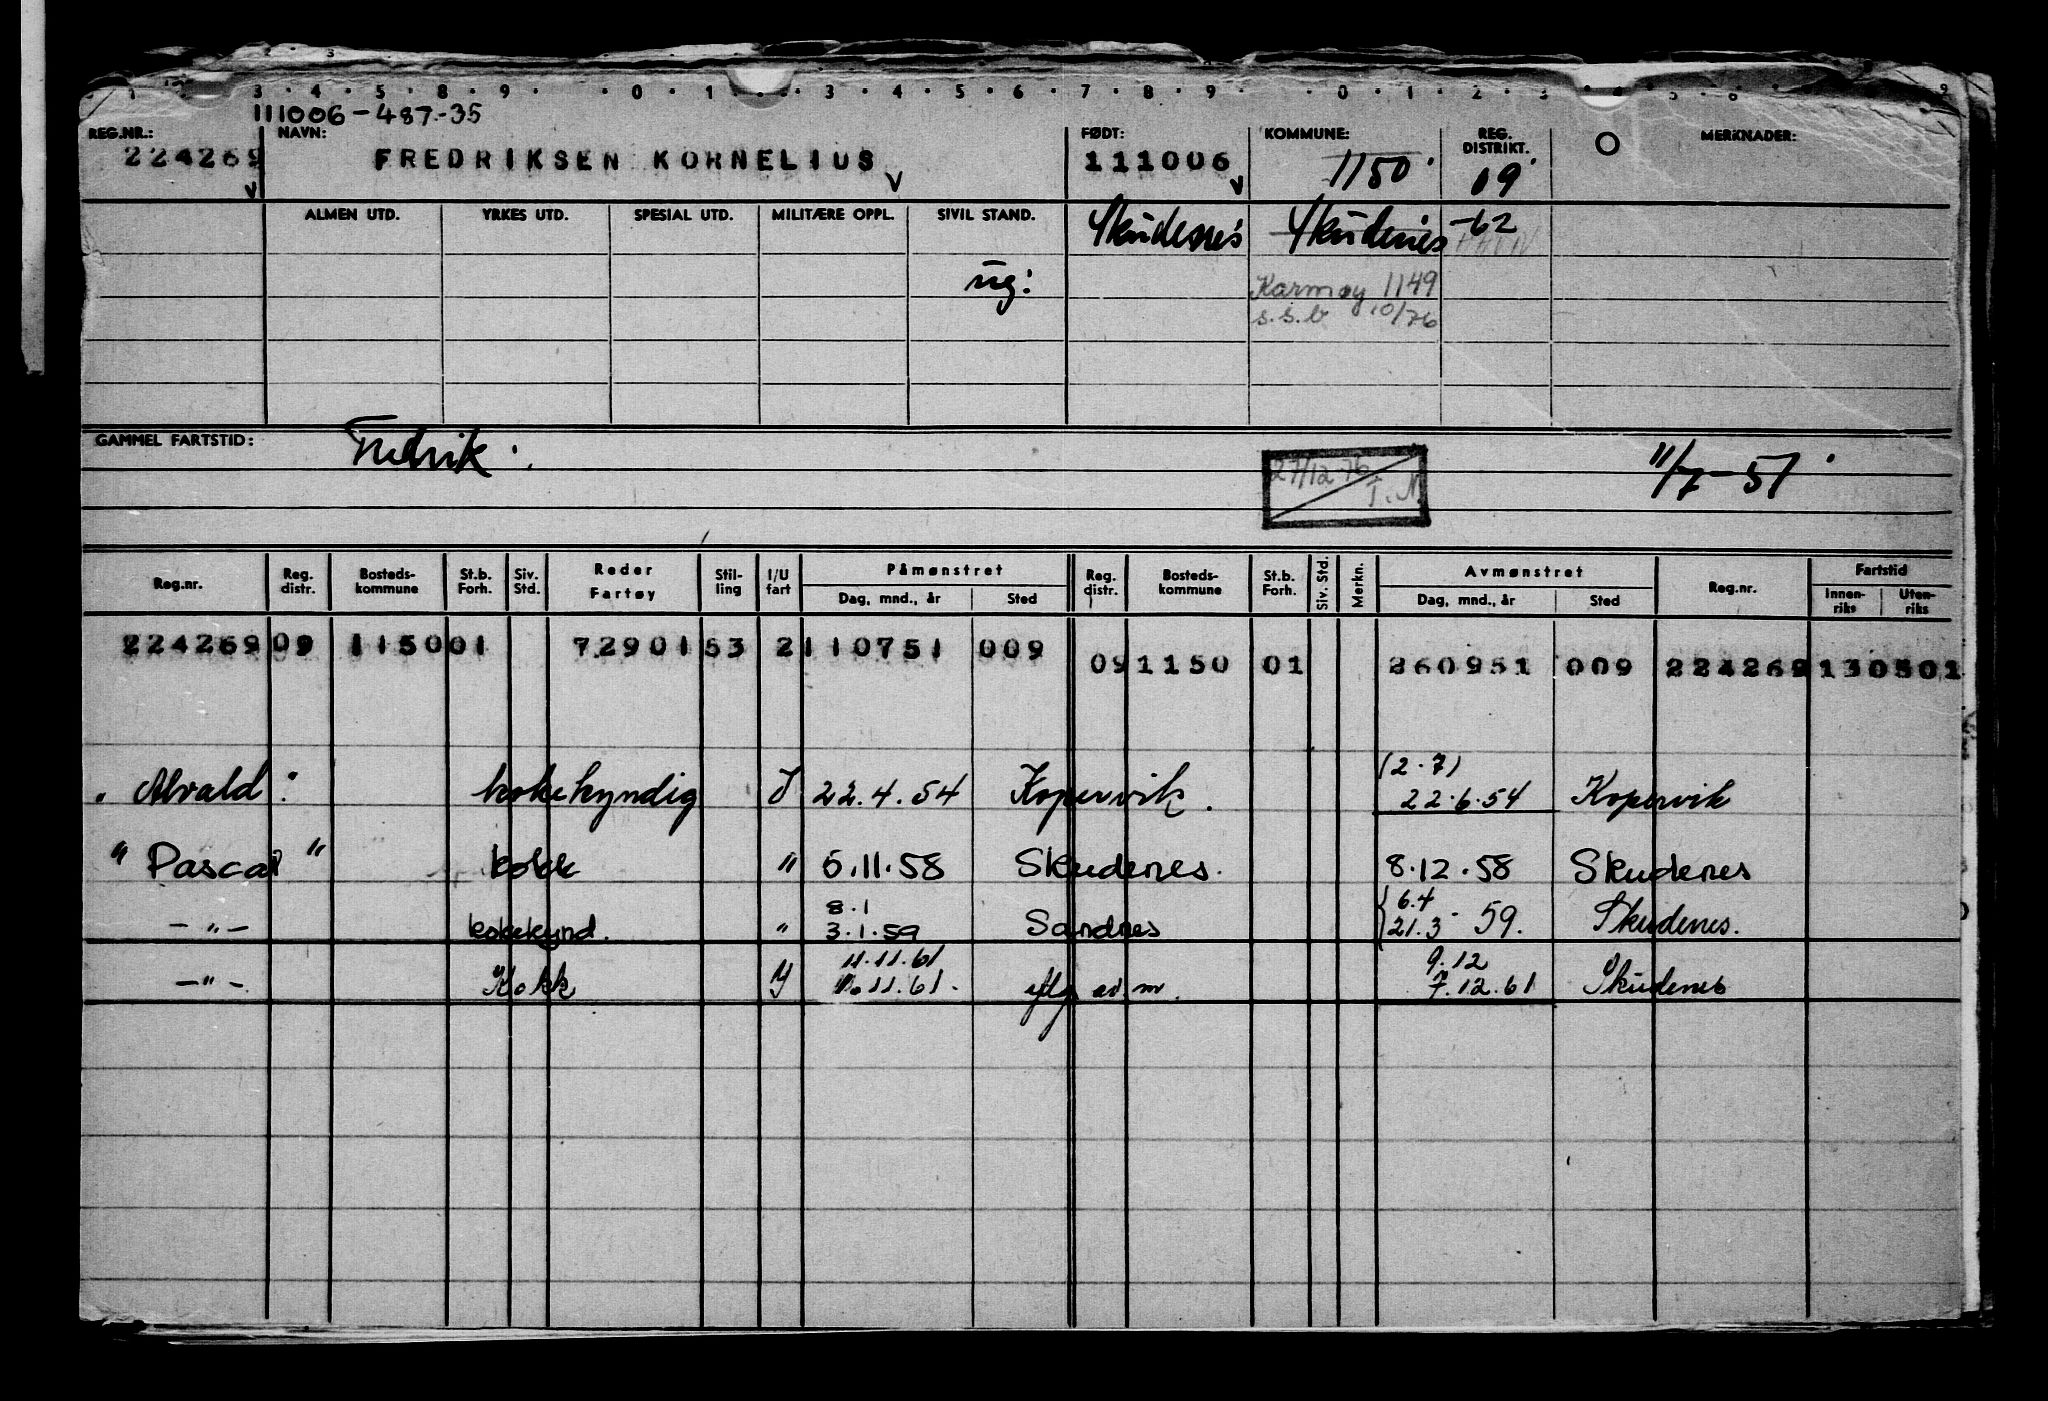 111006-487.-35
REG.NR.: NAVN: FØDT: KOMMUNE: REG. DISTRIKT. MERKNADER:
224269 FREDRIKSEN KORNELIUS 111006 1150 09
ALMEN UTD. YRKES UTD. SPESIAL UTD. MILITÆRE OPPL. SIVIL STAND. Skudenes Skudenes -62
ug: Karmøy 1149
s.s.b 10/76
GAMMEL FARTSTID: Fredrik 27/12 76 T.N. 11/7-51
Reg.nr. Reg. distr. Bosteds- kommune St.b. Forh. Siv. Std. Reder Fartøy Stil- ling I/U fart Påmønstret Dag, mnd., år Sted Reg. distr. Bosteds- kommune St.b. Forh. Siv. Std. Merkn. Avmønstret Dag, mnd., år Sted Reg.nr. Fartstid Innen- riks Uten- riks
224269 09 1150 01 72901 53 2 110751 009 09 1150 01 260951 009 224269 130501
(2.7)
"Alvald" kokekyndig I 22.4.54 Kopervik. 22.6.54 Kopervik
"Pascal" kokk " 5.11.58 Skudenes. 8.12.58 Skudenes
8.1 6.4
-"- kokekynd. " 3.1.59 Sandnes 21.3 59. Skudenes.
11.11.61 9.12
-"- Kokk 11.61. av.m. 7.12.61 Skudenes